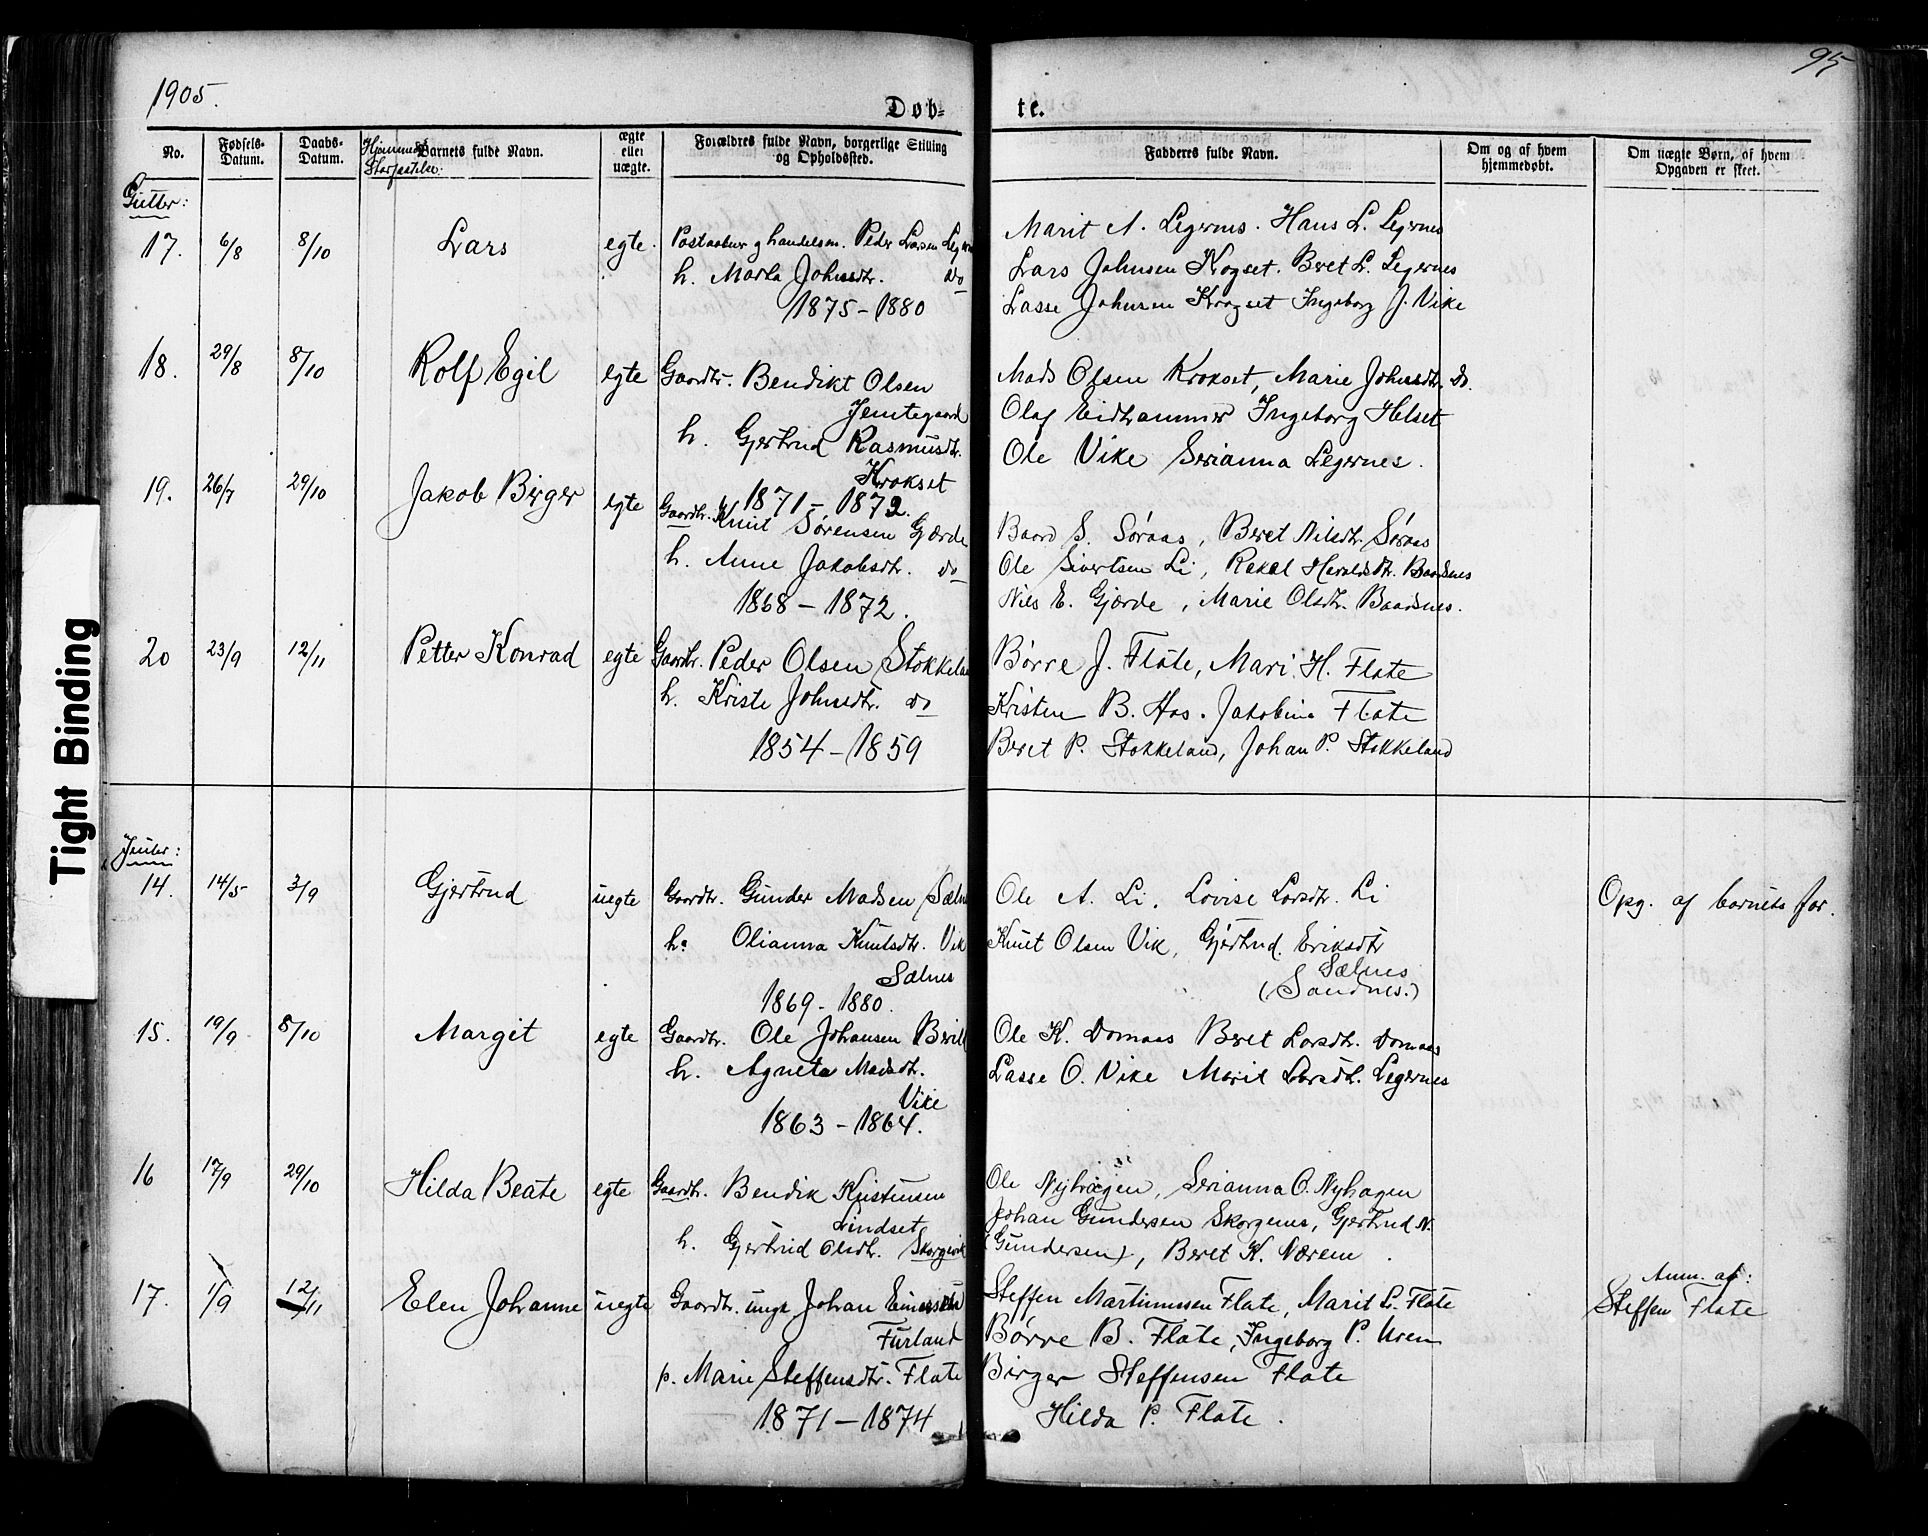 1905.
95
Døb-
te.
No.
Fødsels-
Datum.
Daabs-
Datum.
Barnets fulde Navn.
ægte
eller
uægte.
Forældres fulde Navn, borgerlige Stilling
og Opholdssted.
Fadderes fulde Navn.
Om og af hvem
hjemmedøbt.
Om uægte Børn, af hvem
Opgaven er skeet.
Gutter:
17. 6/8 8/10 Lars egte. Postaabner og handelsm. Peder Larsen
h. Marta Johnsdtr. do
1875-1880
Marit A. Legernes. Hans L. Legernes
Lars Johnsen Kogset. Bret L. Legernes
Lasse Johnsen Krogset Ingeborg J. Vike
18. 29/8 8/10 Rolf Egil egte Gaardbr. Bendikt Olsen
Jemtegaard
h. Gjertrud Rasmusdtr.
Krokset
1871-1872.
Mads Olsen Krokset, Marie Johnsdtr. do.
Olaf Eidhammer Ingeborg Helset
Ole Vike Serianna Legernes.
19. 26/7 29/10 Jakob Birger egte Gaardbr. Knut Sørensen Gjærde
h. Anne Jakobsdtr. do
1868-1872.
Baard S. Søraas, Beret Nilsdtr. Søraas
Ole Sivertsen Li, Rakel Haraldsdtr. Baadsnes
Nils E. Gjærde, Marie Olsdtr. Baadsnes.
20 23/9 12/11 Petter Konrad egte Gaardbr. Peder Olsen Stokkeland
h. Kriste Johnsdtr. do
1854-1859
Børre J. Flate, Mari H. Flate
Kristen B. Has. Jakobine Flate
Beret P. Stokkeland, Johan P. Stokkeland
Jenter:
14. 14/5 3/9 Gjertrud uegte Gaardbr. Gunder Madsen Sælnes
h. Olianna Knutsdtr. Vik
Sælnes
1869-1880.
Ole A. Li, Lovise Larsdtr. Li
Knut Olsen Vik, Gjertrud Eriksdtr
Sælnes
(Sandnes.)
Opg. af barnets far.
15. 19/9 8/10 Margit egte Gaardbr. Ole Johansen
h. Agneta Madsdtr.
Vike
1863-1864.
Ole K. Domaas Beret Larsdtr. Domaas
Lasse O. Vike Marit Larsdtr. Legernes
16 17/9 29/10 Hilda Beate egte Gaardbr. Bendik Kristensen
Lindset
h. Gjertrud Olsdtr. Skorgevik
Ole Nyhagen, Serianna O. Nyhagen
Johan Gundersen Skorgenes, Gjertrud N.
(Gundersen), Beret K. Nærem.
17. 1/9 12/11 Elen Johanne uegte Gaardbr. ungk. Johan Einarsen
Furland
p. Marie Steffensdtr. Flate
1871-1874
Steffen Martinussen Flate, Marit L. Flate
Børre B. Flate, Ingeborg P. Uren
Birger Steffensen Flate
Hilda P. Flate.
Anm. af:
Steffen Flate
Tight Binding